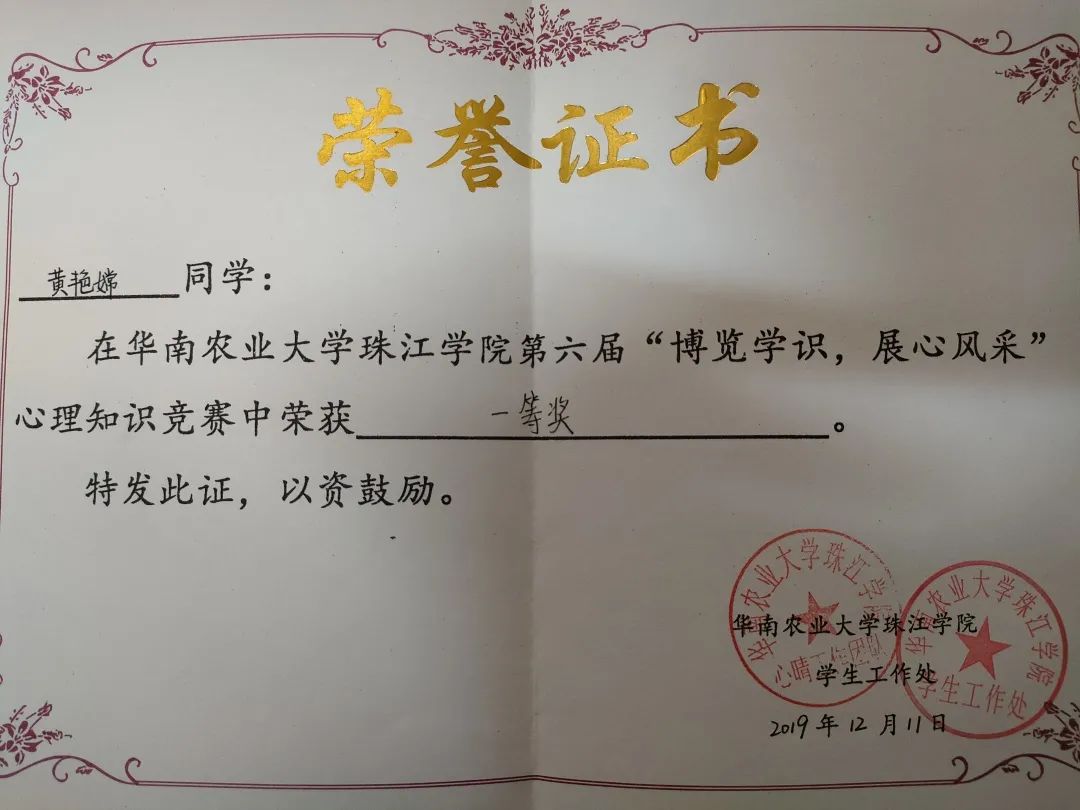 荣誉证书
黄艳嫦 同学：
在华南农业大学珠江学院第六届“博览学识，展心风采”
心理知识竞赛中荣获 一等奖 。
特发此证，以资鼓励。
华南农业大学珠江学院
心晴工作团队
华南农业大学珠江学院
学生工作处
华南农业大学珠江学院
学生工作处
2019 年 12 月 11 日